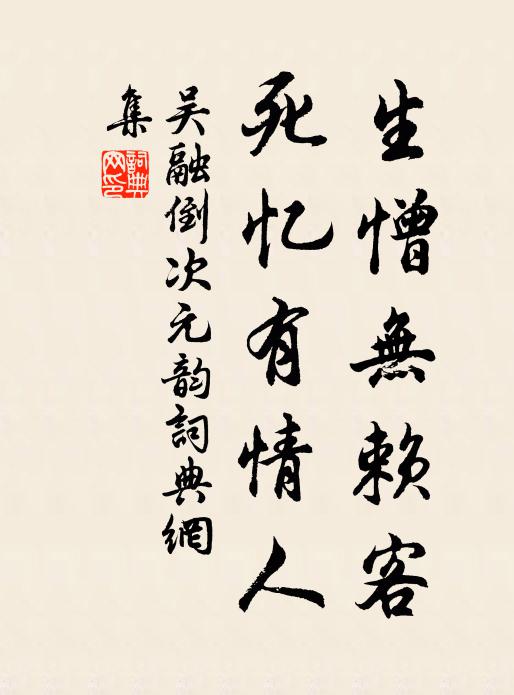 生憎無赖客
死忆有情人
吴融倒次元韵詞典網
集
詞典
网印